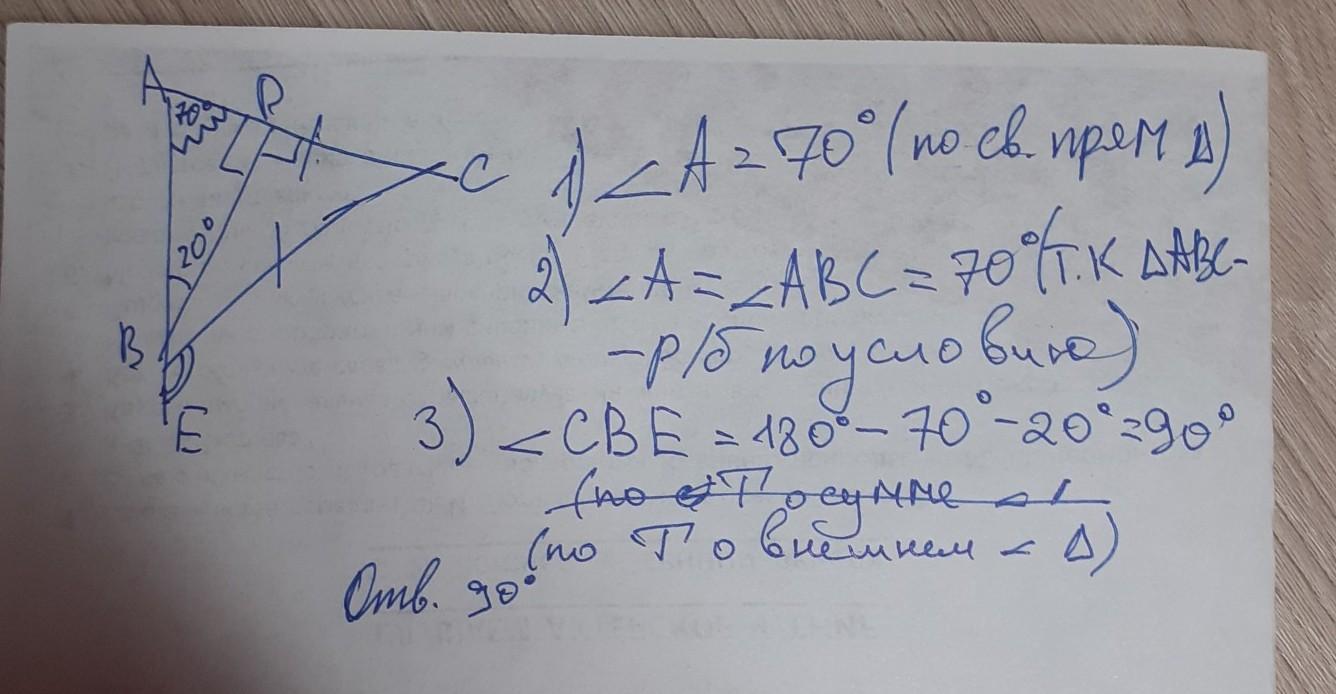 A
P
70°
C
20°
B
E
1) ∠A = 70° (по св. прям Δ)
2) ∠A = ∠ABC = 70° (т.к ΔABC-
- р/б по условию)
3) ∠CBE = 180° - 70° - 20° = 90°
(по Т о сумме ∠
(по Т о внешнем ∠ Δ)
Отв. 90°